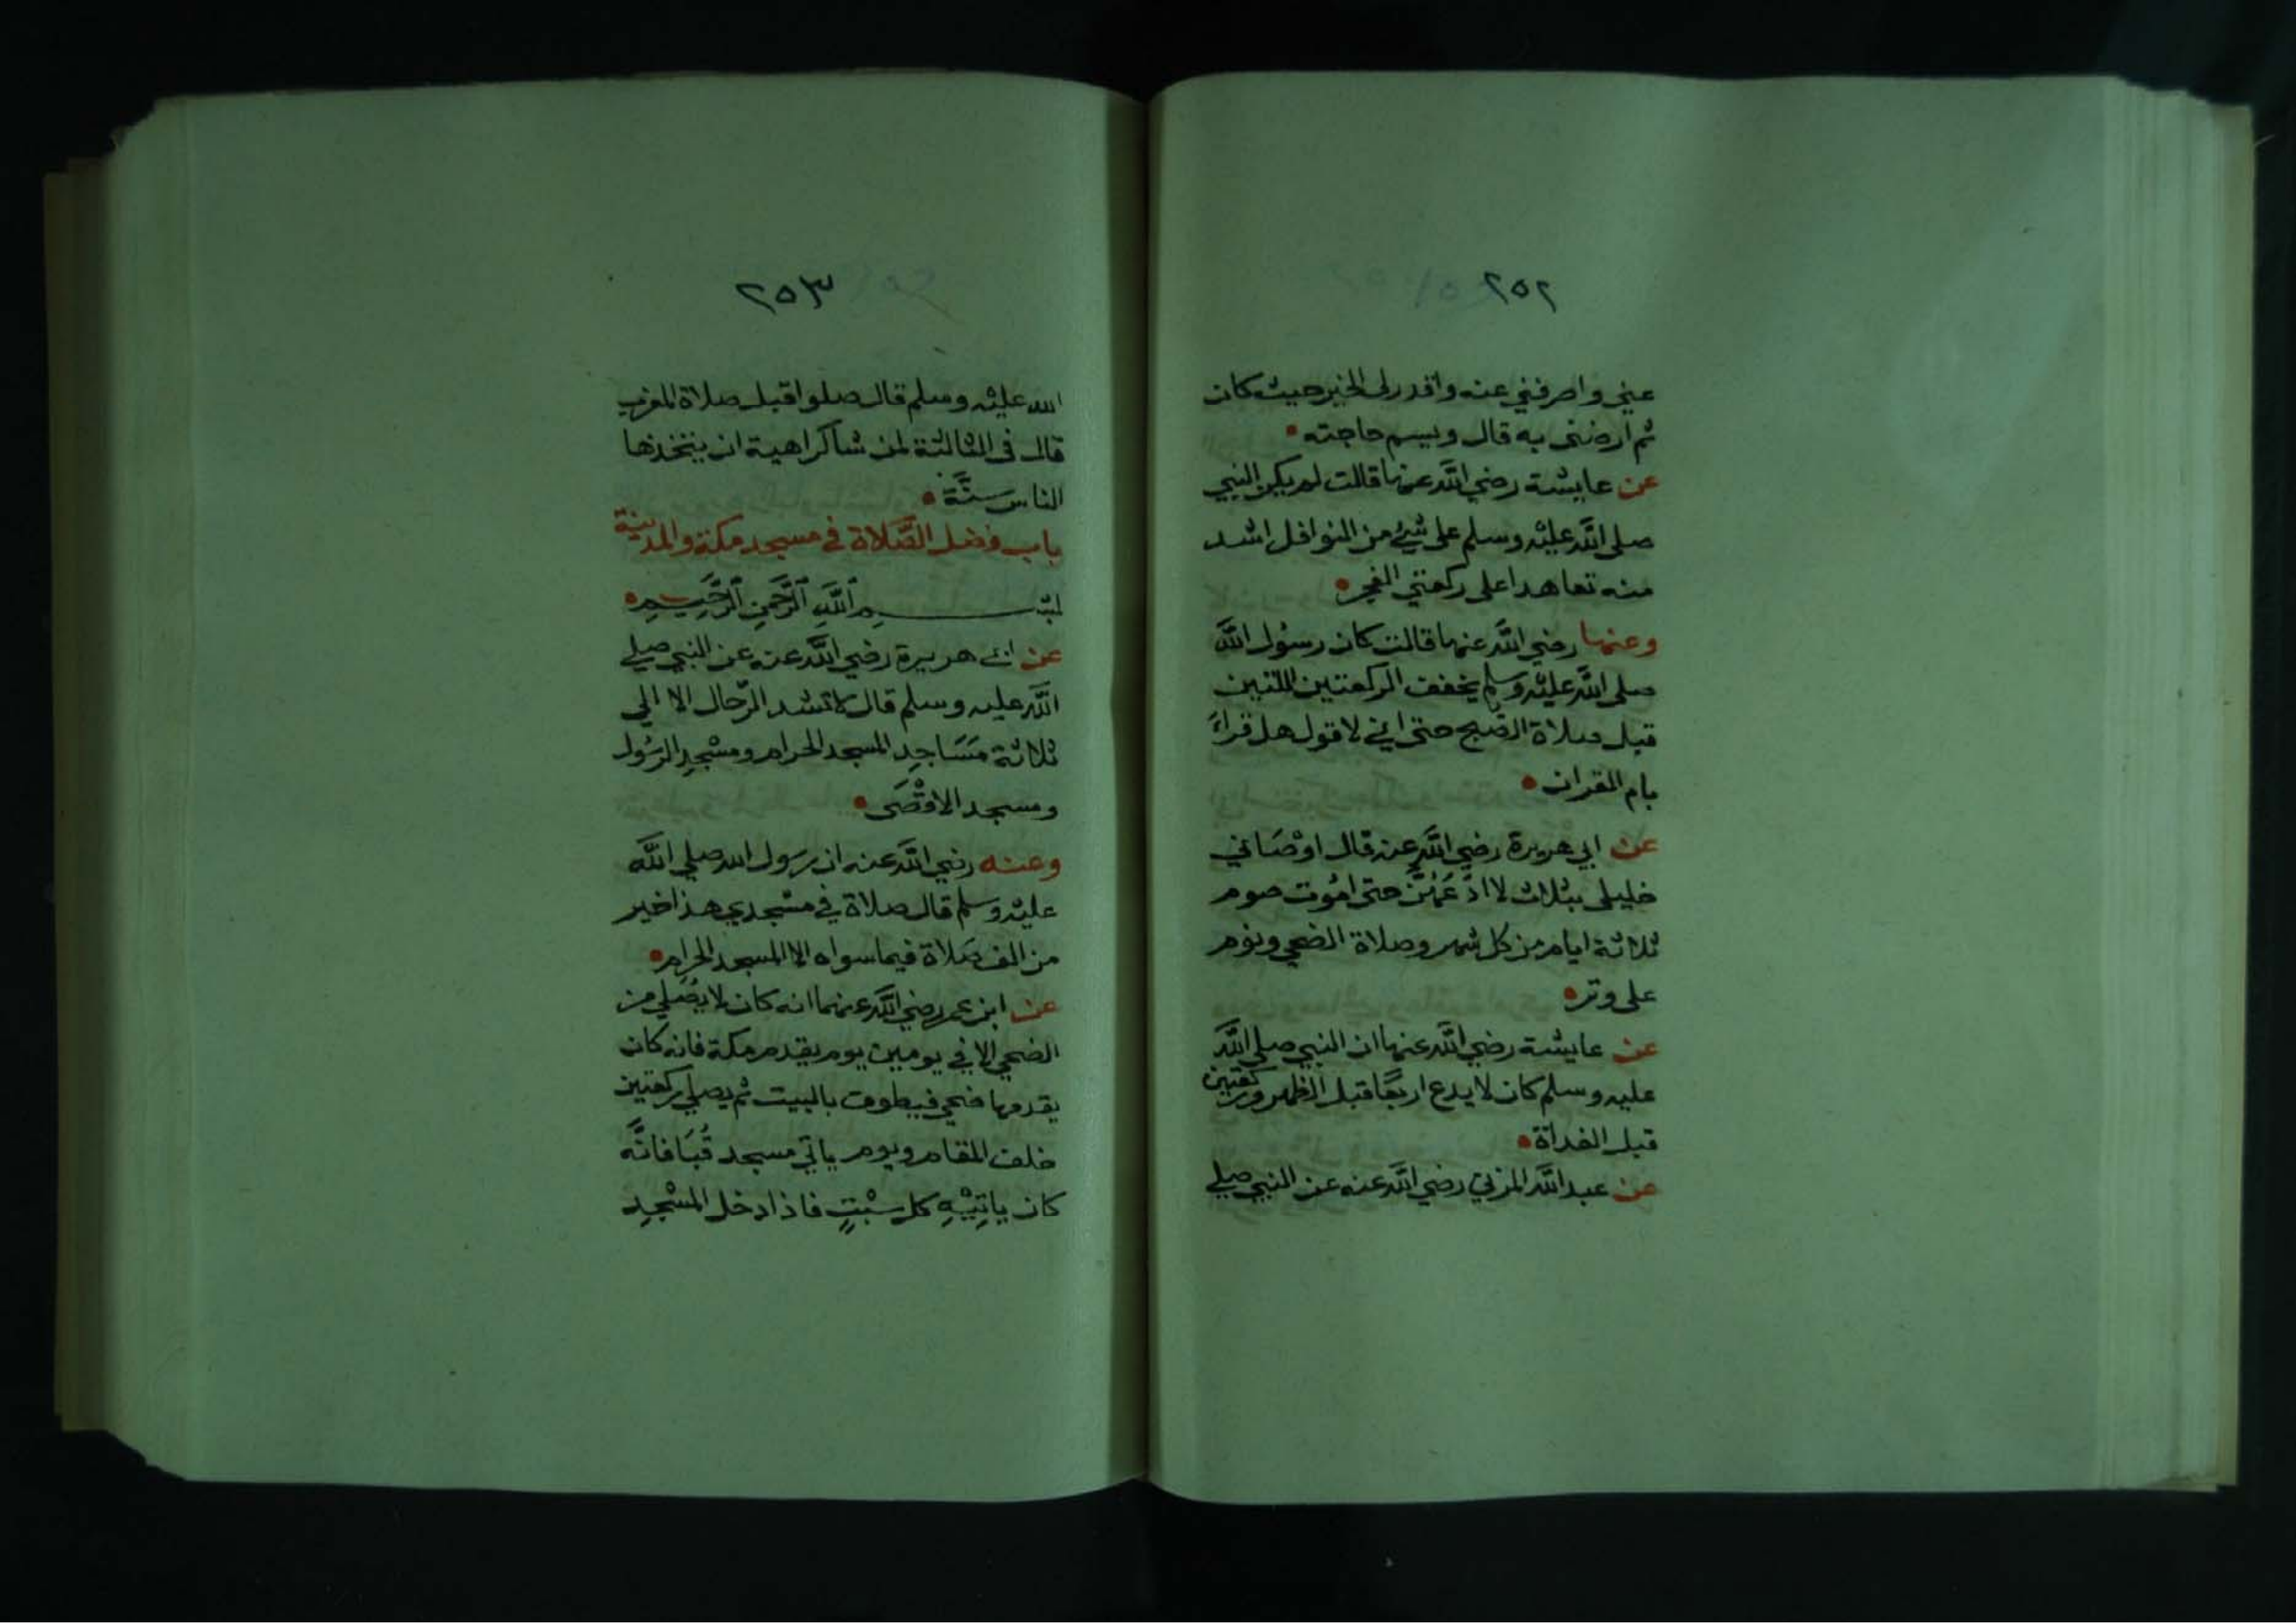 ٢٥٢
عني واصرفني عنه واقدر لى الخير حيث كان
ثم ارضنى به قال ويسم حاجته
عن عايشة رضي الله عنها قالت لم يكن النبي
صلى الله عليه وسلم على شيء من النوافل اشد
منه تعاهدا على ركعتي الفجر
وعنها رضي الله عنها قالت كان رسول الله
صلى الله عليه وسلم يخفف الركعتين اللتين
قبل صلاة الصبح حتى اني لاقول هل قراء
بام القران
عن ابي هريرة رضي الله عنه قال اوْصَاني
خليلى بثلاث لا ادَعُهُنَّ حتى اموت صوم
ثلاثة ايام من كل شهر وصلاة الضحي ونوم
على وتر
عن عايشة رضي الله عنها ان النبي صلي الله
عليه وسلم كان لا يدع اربعًا قبل الظهر وركعتين
قبل الغداة
عن عبد الله المزني رضي الله عنه عن النبي صلي
٢٥٣
الله عليه وسلم قال صلوا قبل صلاة المغرب
قال فى الثالثة لمن شا كراهية ان يتخذها
الناس سنَّة
باب فضل الصَّلاة في مسجد مكة والمدينة
بسم اللَّهِ الرَّحمنِ الرَّحِيمِ
عن ابي هريرة رضي الله عنه عن النبي صلي
الله عليه وسلم قال لا تشد الرّحال الا الي
ثلاثة مَسَاجِدِ المسجد الحرام ومسْجِدِ الرسُول
ومسجد الاقْصَى
وعنه رضي الله عنه ان رسول الله صلي الله
عليه وسلم قال صلاة في مسْجدي هذا خير
من الف صَلاة فيما سواه الا المسجد الحرام
عن ابن عمر رضي الله عنهما انه كان لا يصَلي من
الضحي الا في يومين يوم يقدم مكة فانه كان
يقدمها ضحي فيطوف بالبيت ثم يصلي ركعتين
خلف المقام ويوم ياتي مسجد قُبَا فانَّه
كان ياتِيْهِ كل سَبْتٍ فاذا دخل المسْجِد